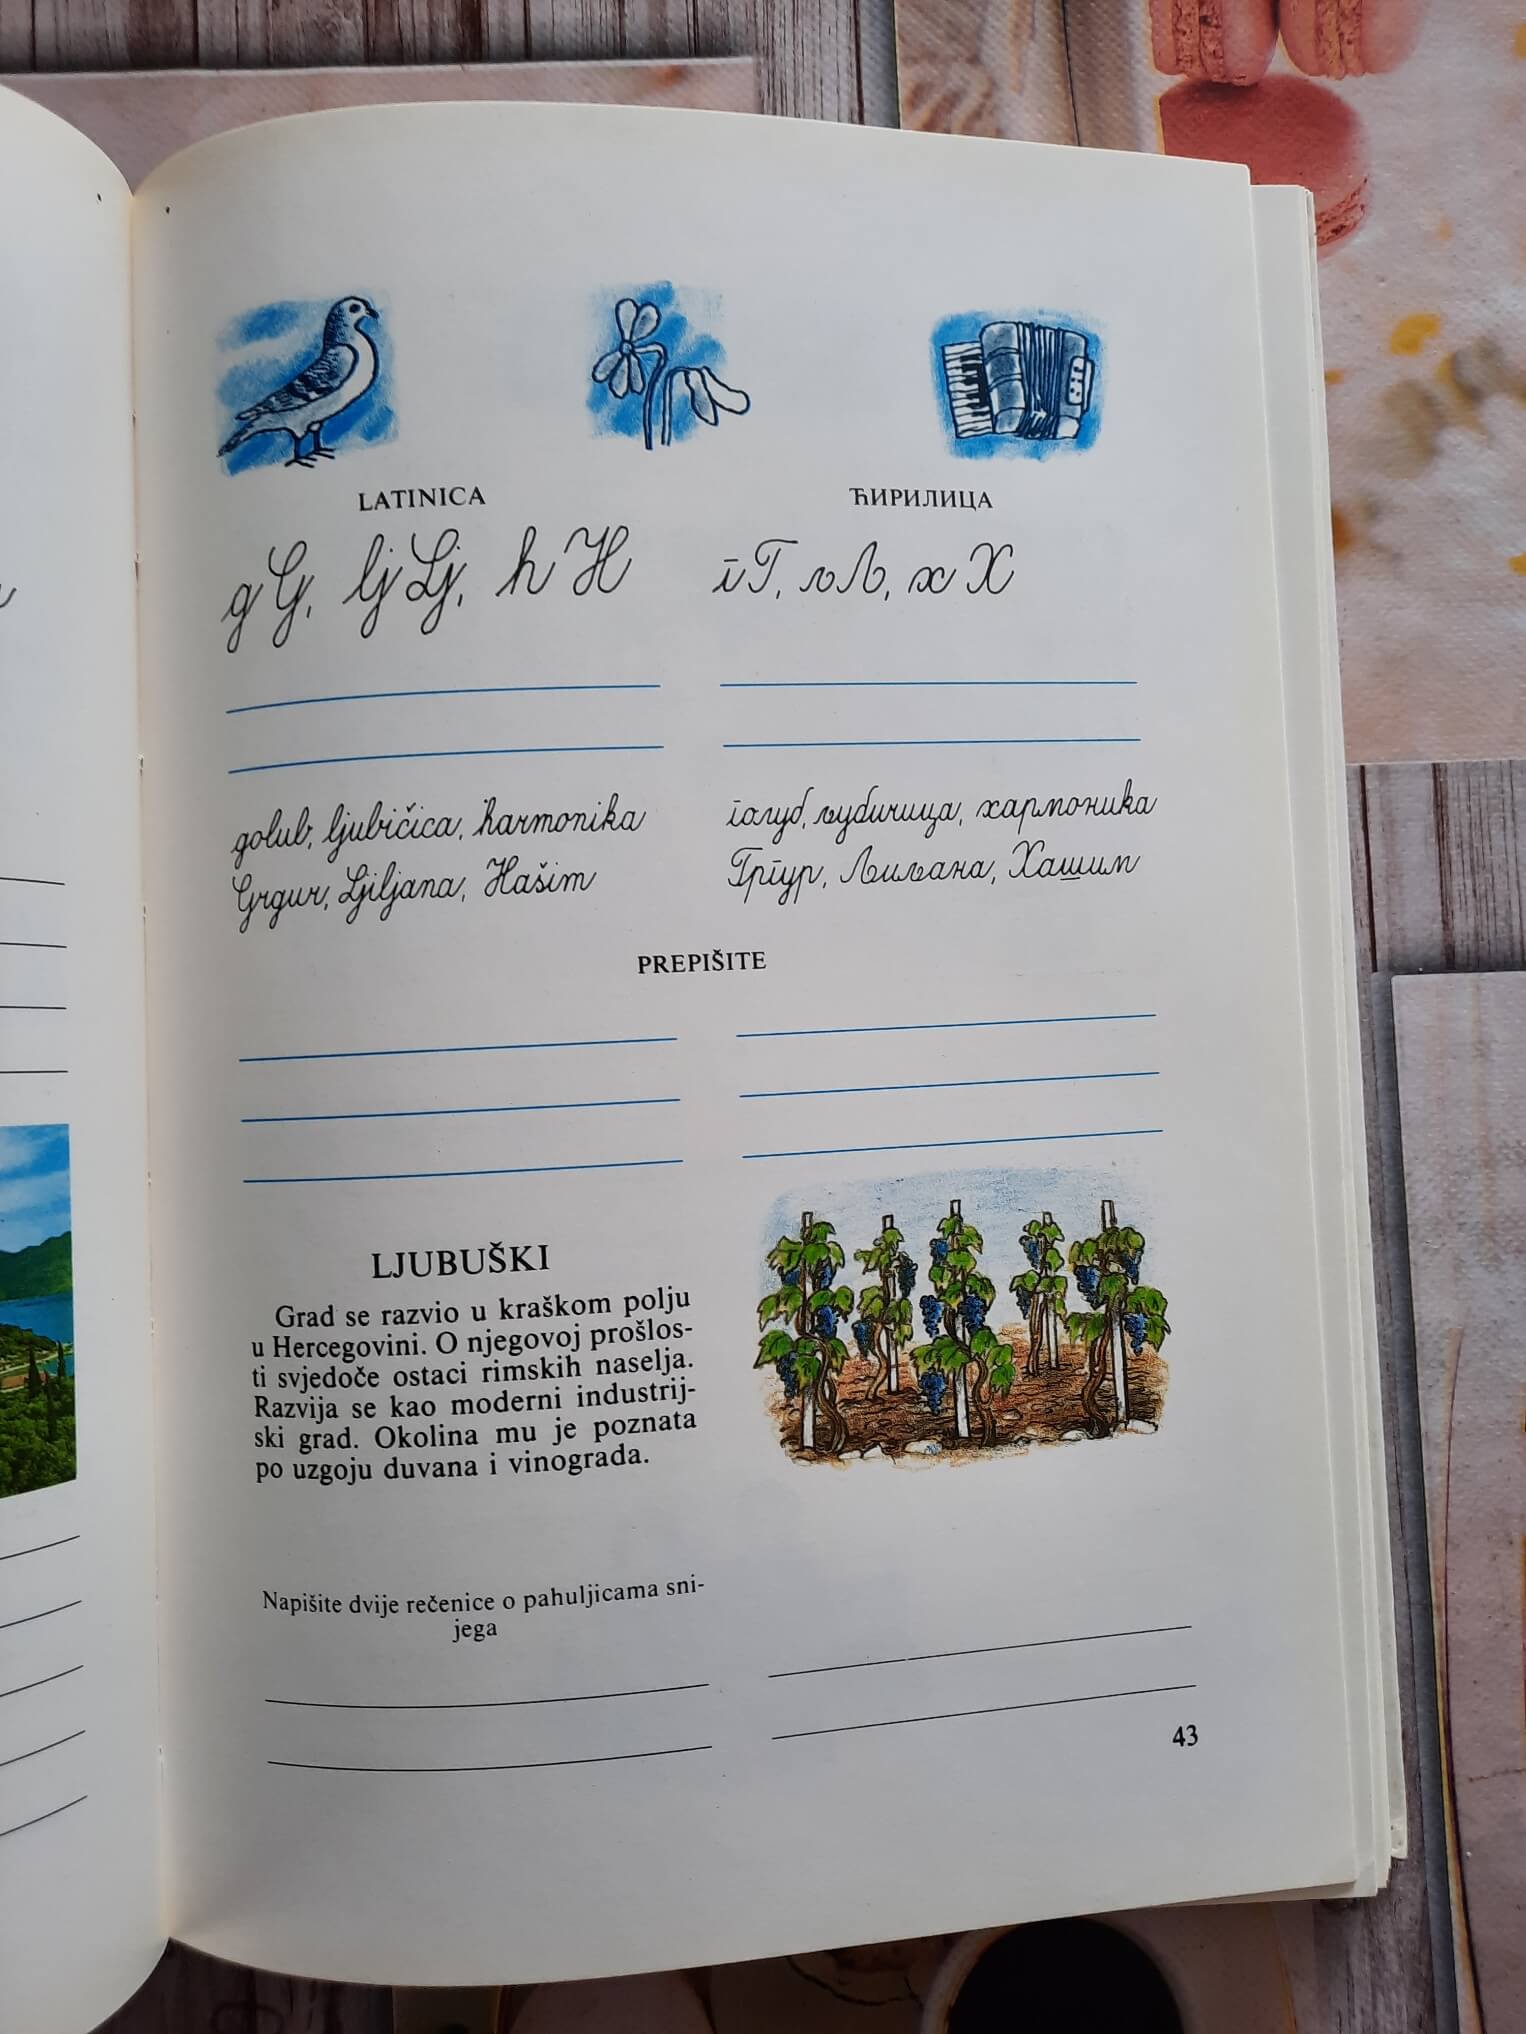 LATINICA
ЋИРИЛИЦА
g G, lj Lj, h H
г Г, љ Љ, х Х
golub, ljubičica, harmonika
Grgur, Ljiljana, Hašim
голуб, љубичица, хармоника
Гргур, Љиљана, Хашим
PREPIŠITE
LJUBUŠKI
Grad se razvio u kraškom polju
u Hercegovini. O njegovoj prošlos-
ti svjedoče ostaci rimskih naselja.
Razvija se kao moderni industrij-
ski grad. Okolina mu je poznata
po uzgoju duvana i vinograda.
Napišite dvije rečenice o pahuljicama sni-
jega
43